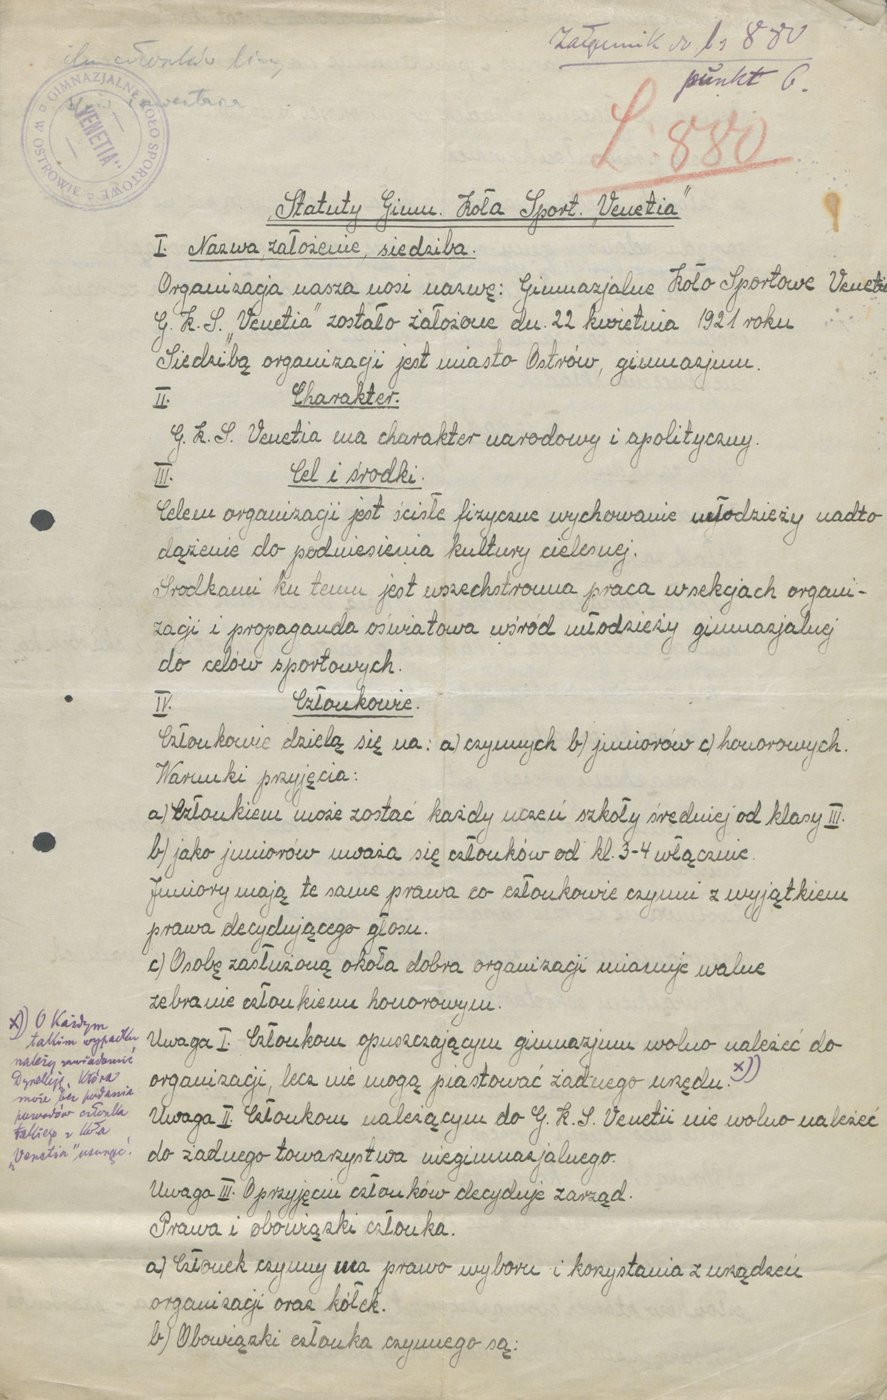 Załącznik do l. 880
punkt 6.
ilu członków liczy
spis inwentarza
GIMNAZJALNE KOŁO SPORTOWE W OSTROWIE
"VENETIA"
L. 880
„Statuty Gimn. Koła Sport. „Venetia”
I. Nazwa, założenie, siedziba.
Organizacja nasza nosi nazwę: Gimnazjalne Koło Sportowe Venetia
G. K. S. „Venetia” zostało założone dn. 22 kwietnia 1921 roku
Siedzibą organizacji jest miasto Ostrów, gimnazjum.
II. Charakter.
G. K. S. Venetia ma charakter narodowy i apolityczny.
III. Cel i środki.
Celem organizacji jest ściśle fizyczne wychowanie młodzieży nadto
dążenie do podniesienia kultury cielesnej.
Środkami ku temu jest wszechstronna praca w sekcjach organi-
zacji i propaganda oświatowa wśród młodzieży gimnazjalnej
do celów sportowych.
IV. Członkowie.
Członkowie dzielą się na: a) czynnych b) juniorów c) honorowych.
Warunki przyjęcia:
a) Członkiem może zostać każdy uczeń szkoły średniej od klasy III.
b) jako juniorów uważa się członków od kl. 3-4 włącznie.
Juniory mają te same prawa co członkowie czynni z wyjątkiem
prawa decydującego głosu.
c) Osobę zasłużoną okoła dobra organizacji mianuje walne
zebranie członkiem honorowym.
Uwaga I. Członkom opuszczającym gimnazjum wolno należeć do
organizacji, lecz nie mogą piastować żadnego urzędu. x))
Uwaga II. Członkom należącym do G. K. S. Venetii nie wolno należeć
do żadnego towarzystwa niegimnazjalnego.
Uwaga III. O przyjęciu członków decyduje zarząd.
Prawa i obowiązki członka.
a) Członek czynny ma prawo wyboru i korzystania z urządzeń
organizacji oraz kółek.
b) Obowiązki członka czynnego są:
x)) O każdym
takim wypadku
należy zawiadomić
Dyrekcję, która
może bez podania
powodów członka
takiego z Koła
„Venetia” usunąć.